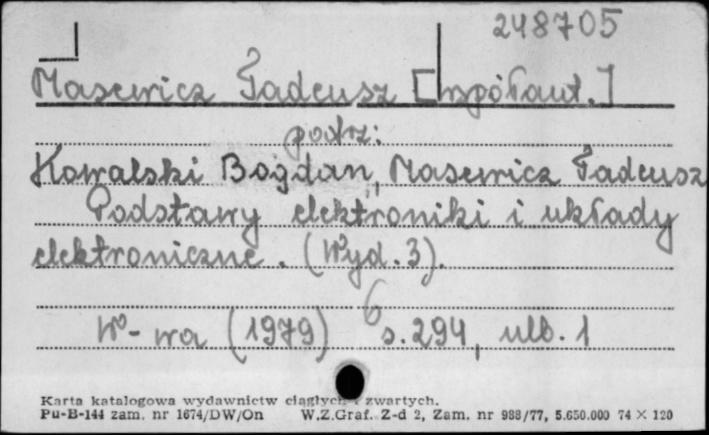 248705
Masewicz Tadeusz [współaut.]
patrz:
Kowalski Bogdan, Masewicz Tadeusz
Podstawy elektroniki i układy
elektroniczne. (Wyd. 3).
W-wa (1979) 6 s. 294, nlb. 1
Karta katalogowa wydawnictw ciągłych i zwartych.
Pu-B-144 zam. nr 1674/DW/On W.Z.Graf. Z-d 2, Zam. nr 988/77, 5.650.000 74 × 120